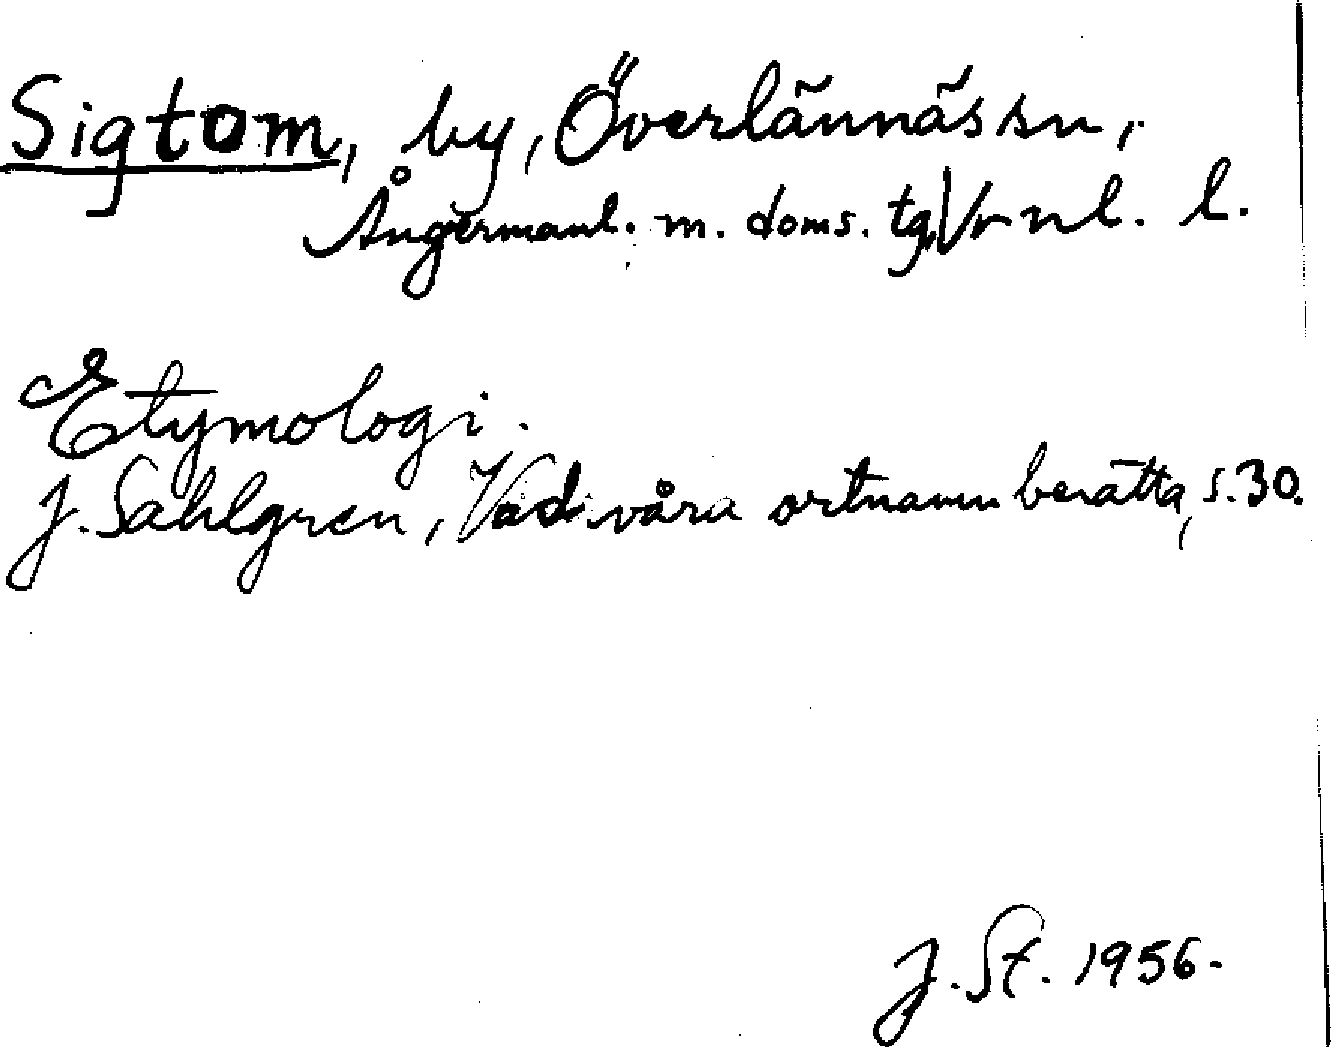 Sigtom, by, Överlännäs sn,
Ångermanl. m. doms. tg, Vrnl. l.
Etymologi.
J. Sahlgren, Vad våra ortnamn berätta, s. 30.
J. St. 1956.